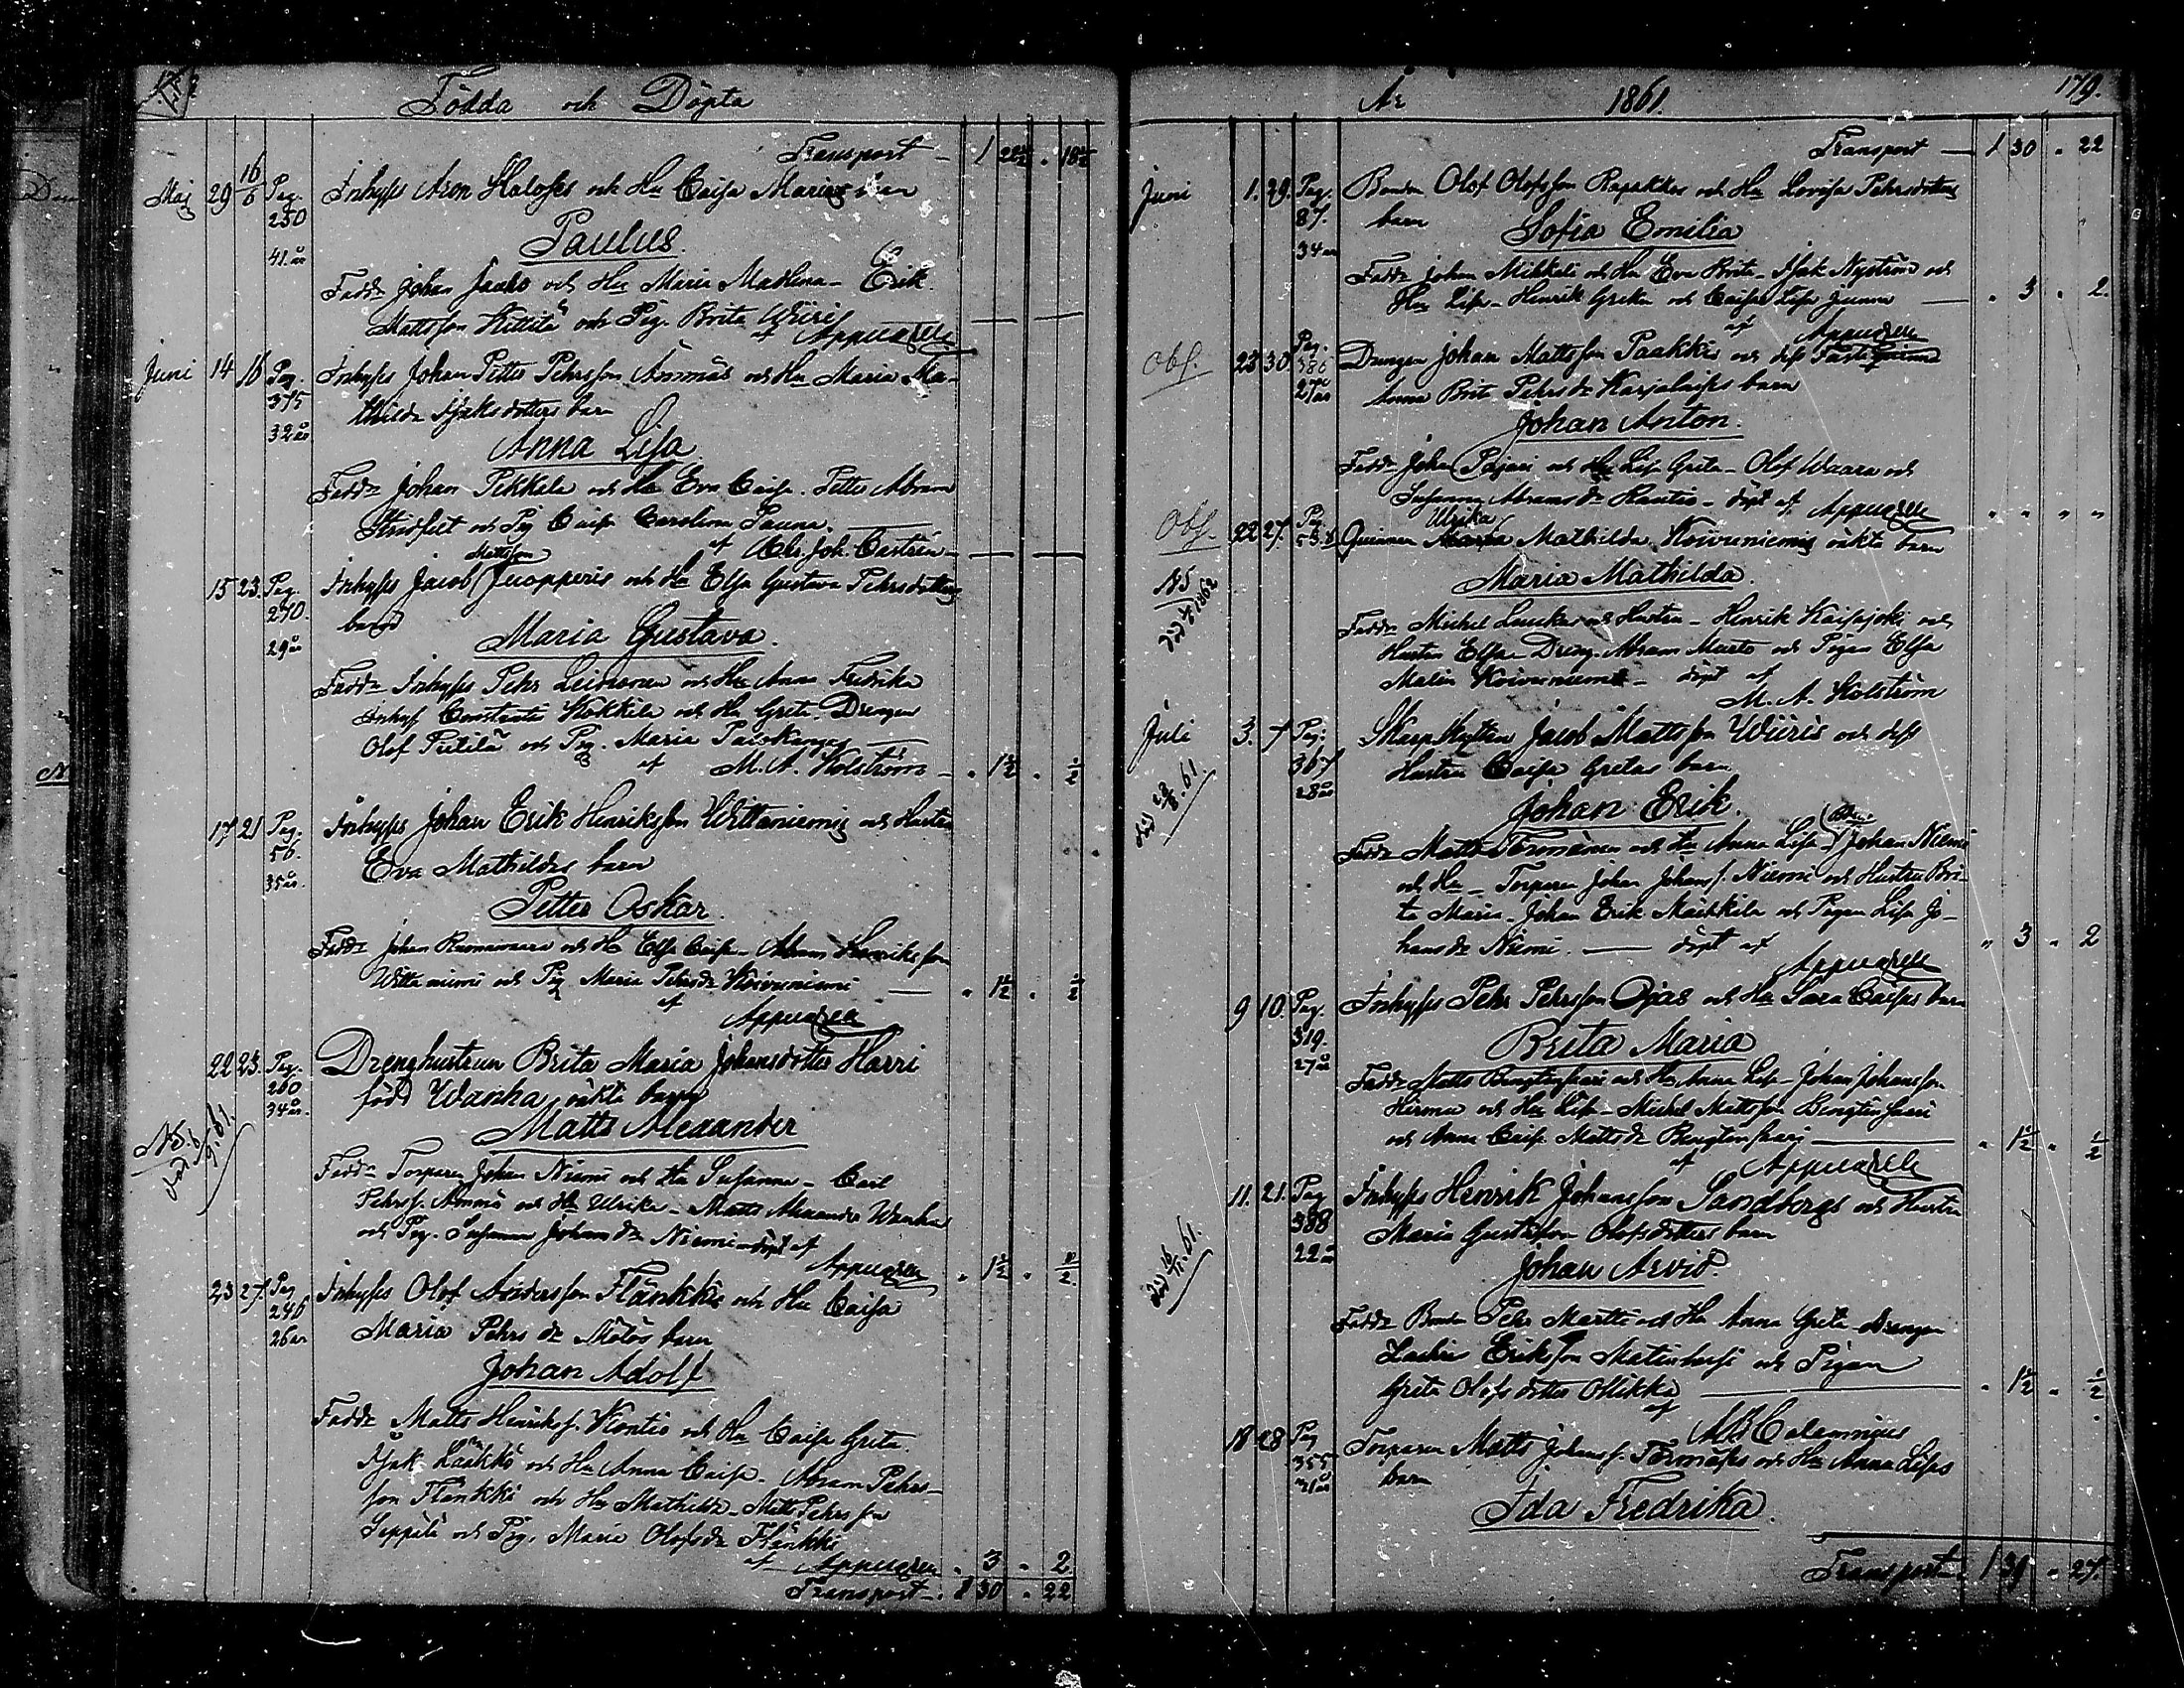 178
Födda och Döpta
Transport – 1 22½ " 18½
Maj 29 16/6 Pag. 250 41 år Inhyses Aron Halosses och Hu Caisa Marias barn
Paulus.
Fadd. Johan Jaako och Hu Maria Mathina – Erik
Mattsson Kittilä och Pig. Brita Wiiri
af Appuareli
Juni 14 16 Pag. 375 32 år Inhyses Johan Petter Pehrsson Ämmäs och Hu Maria Ma-
thilda Isaksdotters barn
Anna Lisa
Fadd. Johan Pekkala och Hu Eva Caisa. Petter Abram
och Pig Caisa Carolina Sauna.
af Chr. Joh. Castrén
Mattsson
15 23. Pag. 270. 29 år Inhyses Jacob Juopperis och Hu Elsa Gustava Pehrsdotters
barn
Maria Gustava.
Fadd. Inhyses Pehr Leinonen och Hu Anna Fredrika
Inhys Constantin Kokkila och Hu Greta. Drengen
Olof Pietilä och Pig. Maria
af M. A. Kolström – " 1½ " ½
17 21 Pag. 56. 35 år. Inhyses Johan Erik Henriksson Wittaniemis och Hustru
Eva Mathildas barn
Petter Oskar.
Fadd. Johan Ruonavaara och Hu Elsa Caisa – Abram Henriksson
Wittaniemi och Pig Maria Pehrsdr Koivuniemi – " 1½ " ½
af Appuareli
22 23. Pag. 260 34 år. Drenghustrun Brita Maria Johansdotter Harri
född Wanha oäkta barn
N5. död 6/9. 61.
Matts Alexander
Fadd. Torparen Johan Niemi och Hu Susanna – Carl
Pehrss. Ämmä och Hu Ulrika – Matts Alexander Wanha
och Pig. Susanna Johansdr Niemi – döpt af
Appuareli " 1½ " ½
23 27. Pag 246 26 år Inhyses Olof Andersson Flänkkis och Hu Caisa
Maria Pehrsdr Mötös barn
Johan Adolf
Fadd. Matts Henrikss. Kontio och Hu Caisa Greta.
Isak Laakko och Hu Anna Caisa. Abram Pehrs-
son Flänkki och Hu Mathilda – Matts Pehrsson
Seppälä och Pig. Maria Olofsdr Flänkki
af Appuareli " 3 " 2
Transport – 1 30 " 22
År 1861. 179.
Transport – 1 30 " 22
Juni 1. 29. Pag. 87. 34 år Bonden Olof Olofsson Rapakkos och Hu Lovisa Pehrsdotters
barn Sofia Emilia
Fadd. Johan Mikkeli och Hu Eva Brita – Isak Nyström och
Hu Lisa – Henrik Greken och Caisa Lisa – " 3 " 2.
af Appuareli
Obs. 23 30. Pag. 386 27 år Drengen Johan Mattsson Paakkis och dess Fästeqvinna
Anna Brita Pehrsdr Karjalaises barn
Johan Anton.
Fadd. Johan Pajari och Hu Lisa Greta – Olof Waara och
Susanna Abramsdr Rautio – döpt af Appuareli " " " "
Ulrika
Obs. 22 27. Pag. Qvinnan Maria Mathilda Koivuniemis oäkta barn
N5 död 1862
Maria Mathilda.
Fadd. Michel Laucka och Hustru – Henrik Kaisajoki och
Hustru Elsa – Dreng. Abram Marto och Pigan Elsa
Malin Koivuniemi – döpt af
M. A. Kolström
Juli 3. 7 Pag. 367 28 år Skarpskytten Jacob Mattsson Wiiris och dess
Hustru Caisa Gretas barn
död 28/8. 61.
Johan Erik.
Fadd. Matts Törmänen och Hu Anna Lisa – Johan Niemi
och Hu – Torparen Johan Johans s. Niemi och Hustru Bri-
ta Maria – Johan Erik Mäkkila och Pigan Lisa Jo-
hansdr Niemi. – döpt af " 3 " 2
Appuareli
9 10. Pag. 319. 27 år Inhyses Pehr Pehrsson Ojas och Hu Sara Caisas barn
Brita Maria
Fadd. Matts och Hu Anna Lisa – Johan Johansson
och Hu Lisa – Michel Mattsson
och Anna Caisa Mattsdr – " 1½ " ½
af Appuareli
11. 21. Pag 388 22 år Inhyses Henrik Johansson Sandbergs och Hustru
Maria Gustafva Olofsdotters barn
död 16/11. 61.
Johan Arvid.
Fadd. Bonden Pehr Martti och Hu Anna Greta – Drengen
Zachris Eriksson och Pigan
Greta Olofsdotter Ollikka – " 1½ " ½
af M B Calamnius
18 28 Pag 355 31 år Torparen Matts Johans s. Törmäses och Hu Anna Lisas
barn
Ida Fredrika.
Transport – 1 39 " 27.